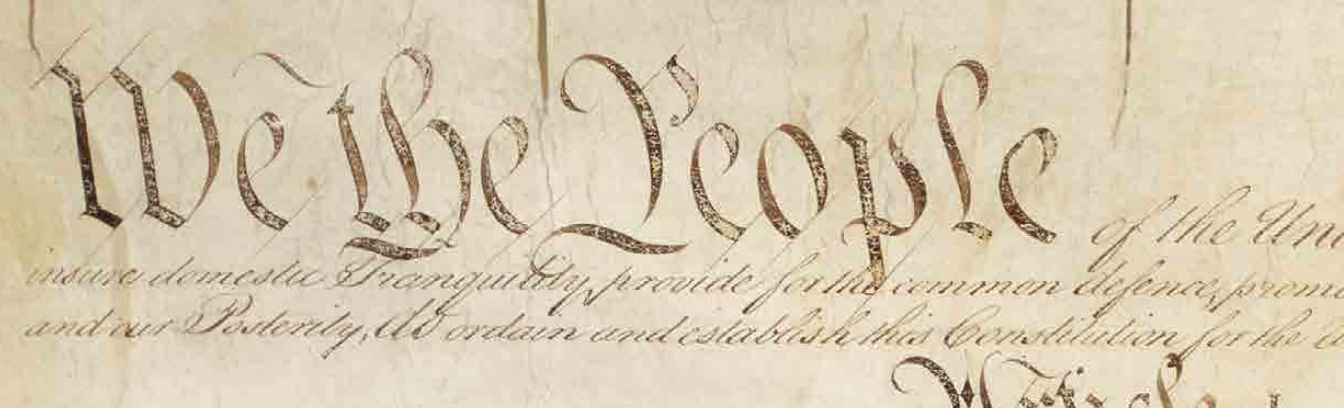 We the People of the Un
insure domestic Tranquility, provide for the common defence, prom
and our Posterity, do ordain and establish this Constitution for the